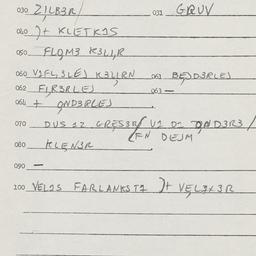 030 ZILB3R/ 031 GRUV
040 )+ KLETK1S
050 FLQM3 K3LI,R
060 V1FL,3LEJ K3L,RN 061 BEJD3RLEJ
062 F,R3RLEJ 063 —
064 + QND3RLEJ .
070 DUS 12 GRES3R/ V1 D1 QND3R3/
(FN DEJM
080 KLEN3R .
090 —
100 VEL1S FARLANKST1 )+ VEL3X3R